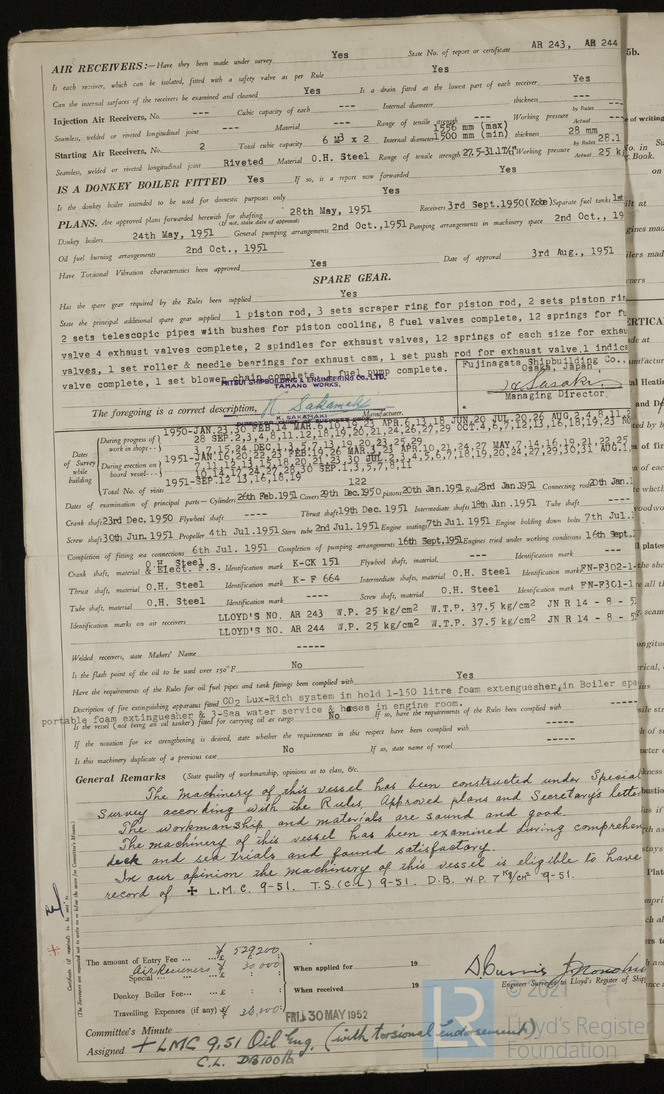 AIR RECEIVERS:—Have they been made under survey Yes State No. of report or certificate AR 243, AR 244
Is each receiver, which can be isolated, fitted with a safety valve as per Rule Yes
Can the internal surfaces of the receivers be examined and cleaned Yes Is a drain fitted at the lowest part of each receiver Yes
Injection Air Receivers, No. --- Cubic capacity of each --- Internal diameter --- thickness ---
Seamless, welded or riveted longitudinal joint --- Material --- Range of tensile strength --- Working pressure by Rules --- Actual ---
Starting Air Receivers, No. 2 Total cubic capacity 6 M3 x 2 Internal diameter 1556 mm (max) 1500 mm (min) thickness 28 mm
Seamless, welded or riveted longitudinal joint Riveted Material O.H. Steel Range of tensile strength 27.5-31.1 Working pressure by Rules 28.1 Actual 25
IS A DONKEY BOILER FITTED Yes If so, is a report now forwarded Yes
Is the donkey boiler intended to be used for domestic purposes only Yes
PLANS. Are approved plans forwarded herewith for shafting 28th May, 1951 Receivers 3rd Sept.1950(Kobe) Separate fuel tanks 1st
(If not, state date of approval)
Donkey boilers 24th May, 1951 General pumping arrangements 2nd Oct.,1951 Pumping arrangements in machinery space 2nd Oct., 19
Oil fuel burning arrangements 2nd Oct., 1951
Have Torsional Vibration characteristics been approved Yes Date of approval 3rd Aug., 1951
SPARE GEAR.
Has the spare gear required by the Rules been supplied Yes
State the principal additional spare gear supplied 1 piston rod, 3 sets scraper ring for piston rod, 2 sets piston
2 sets telescopic pipes with bushes for piston cooling, 8 fuel valves complete, 12 springs for
valve 4 exhaust valves complete, 2 spindles for exhaust valves, 12 springs of each size for
valves, 1 set roller & needle bearings for exhaust cam, 1 set push rod for exhaust valve,1
valve complete, 1 set blower chain complete, 1 fuel pump complete.
MITSUI SHIPBUILDING & ENGINEERING CO., LTD.
TAMANO WORKS.
Fujinagata Shipbuilding Co.,
Osaka, Japan,
Managing Director.
The foregoing is a correct description,
K. SAKAMAKI
Manufacturer.
Dates of Survey while building
During progress of work in shops-- 1950-JAN.23,30 FEB.14 MAR.6,10,19,21 APR.6,11,18 JUN.20 JUL.20,26 AUG.2,4,8,11
28 SEP.2,3,4,8,11,12,18,19,20,21,24,26,27,29 OCT.4,6,7,12,13,16,18,19,23
During erection on board vessel---
1951-SEP.12,13,16,18,19
Total No. of visits 122
Dates of examination of principal parts—Cylinders 26th Feb.1951 Covers 29th Dec.1950 pistons 20th Jan.1951 Rods 23rd Jan.1951 Connecting rods 20th Jan.
Crank shaft 23rd Dec. 1950 Flywheel shaft ---- Thrust shaft 19th Dec. 1951 Intermediate shafts 18th Jun .1951 Tube shaft ----
Screw shaft 30th Jun. 1951 Propeller 4th Jul.1951 Stern tube 2nd Jul. 1951 Engine seating 7th Jul. 1951 Engine holding down bolts 7th Jul.
Completion of fitting sea connections 6th Jul. 1951 Completion of pumping arrangements 16th Sept.1951 Engines tried under working conditions 16th Sept.
Crank shaft, material O.H. Steel & Elect. F.S. Identification mark K-CK 151 Flywheel shaft, material --- Identification mark ---
Thrust shaft, material O.H. Steel Identification mark K- F 664 Intermediate shafts, material O.H. Steel Identification mark FN-F302-1
Tube shaft, material O.H. Steel Identification mark ---- Screw shaft, material O.H. Steel Identification mark FN-F301-1
Identification marks on air receivers LLOYD'S NO. AR 243 W.P. 25 kg/cm2 W.T.P. 37.5 kg/cm2 JN R 14 - 8 -
LLOYD'S NO. AR 244 W.P. 25 kg/cm2 W.T.P. 37.5 kg/cm2 JN R 14 - 8 -
Welded receivers, state Makers' Name -----
Is the flash point of the oil to be used over 150°F No
Have the requirements of the Rules for oil fuel pipes and tank fittings been complied with Yes
Description of fire extinguishing apparatus fitted CO2 Lux-Rich system in hold 1-150 litre foam extenguesher,in Boiler
portable foam extinguesher & 3-Sea water service & hoses in engine room.
Is the vessel (not being an oil tanker) fitted for carrying oil as cargo No If so, have the requirements of the Rules been complied with -----
If the notation for ice strengthening is desired, state whether the requirements in this respect have been complied with -----
Is this machinery duplicate of a previous case No If so, state name of vessel -----
General Remarks (State quality of workmanship, opinions as to class, &c.
The machinery of this vessel has been constructed under Special
Survey according with the Rules, Approved plans and Secretary's letter
The workmanship and materials are sound and good.
The machinery of this vessel has been examined during
dock and sea trials and found satisfactory.
In our opinion the machinery of this vessel is eligible to have
record of ✠ L.M.C. 9-51. T.S.(C.L) 9-51. D.B. W.P. 7 Kg/cm² 9-51.
Certificate (if required) to be sent to
(The Surveyors are requested not to write on or below the space for Committee's Minute.)
The amount of Entry Fee ... ¥ 529200
Air Receivers Special ... ¥ 30,000 When applied for 19
Donkey Boiler Fee... ... £ : : When received 19
Travelling Expenses (if any) ¥ 36,000
Engineer Surveyor to Lloyd's Register of Ship
FRI. 30 MAY 1952
Committee's Minute
Assigned + LMC 9.51 Oil Eng. (with torsional endorsement)
C.L. DB 100 lb
© 2021
LR
Lloyd's Register
Foundation